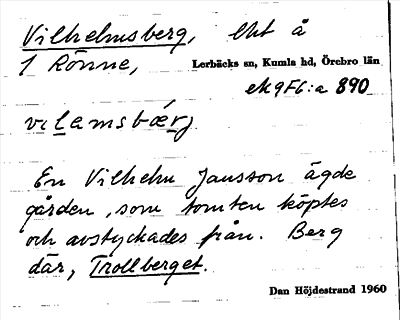 Vilhelmsberg, lht å
1 Rönne, Lerbäcks sn, Kumla hd, Örebro län
ek 9F6:a 890
vilemsbærj
En Vilhelm Jansson ägde
gården, som tomten köptes
och avstyckades från. Berg
där, Trollberget.
Dan Höjdestrand 1960